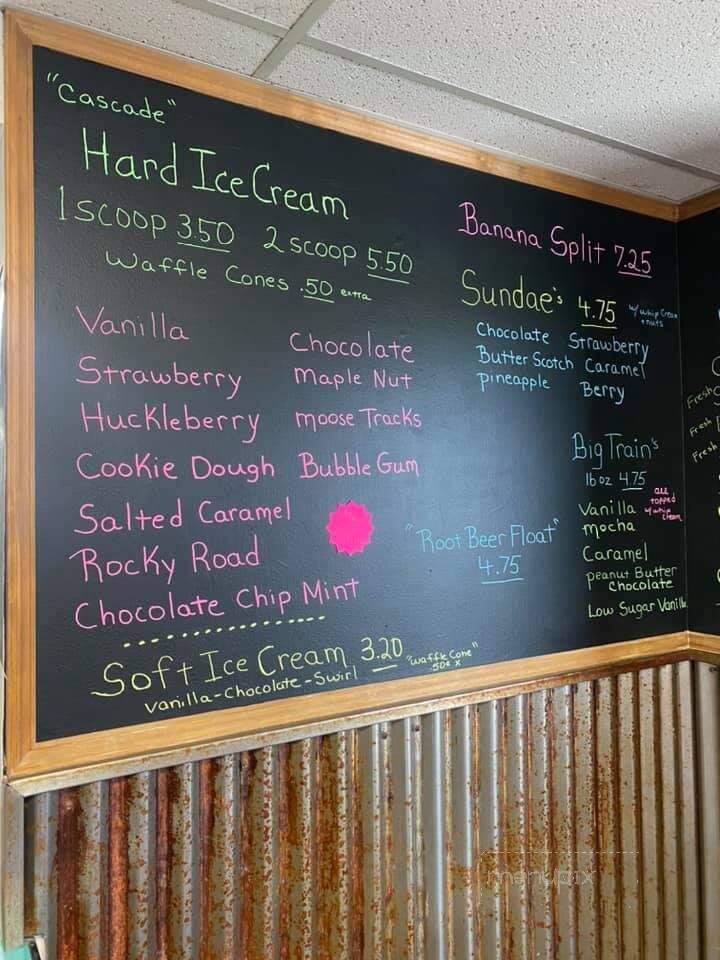 "Cascade"
Hard Ice Cream
1 SCOOP 3.50 2 SCOOP 5.50
Waffle Cones .50 extra
Vanilla
Strawberry
Huckleberry
Cookie Dough
Salted Caramel
Rocky Road
Chocolate Chip Mint
Chocolate
Maple Nut
moose Tracks
Bubble Gum
Soft Ice Cream 3.20 "waffle Cone"
.50¢ x
Vanilla-Chocolate-Swirl
Banana Split 7.25
Sundae's 4.75 w/ whip Cream
+ nuts
Chocolate Strawberry
Butter Scotch Caramel
pineapple Berry
"Root Beer Float"
4.75
Big Train's
16 oz 4.75
all
topped
w/ whip
cream
Vanilla
mocha
Caramel
peanut Butter
Chocolate
Low Sugar Vanilla
Fresh
Fresh
Fresh
menupix